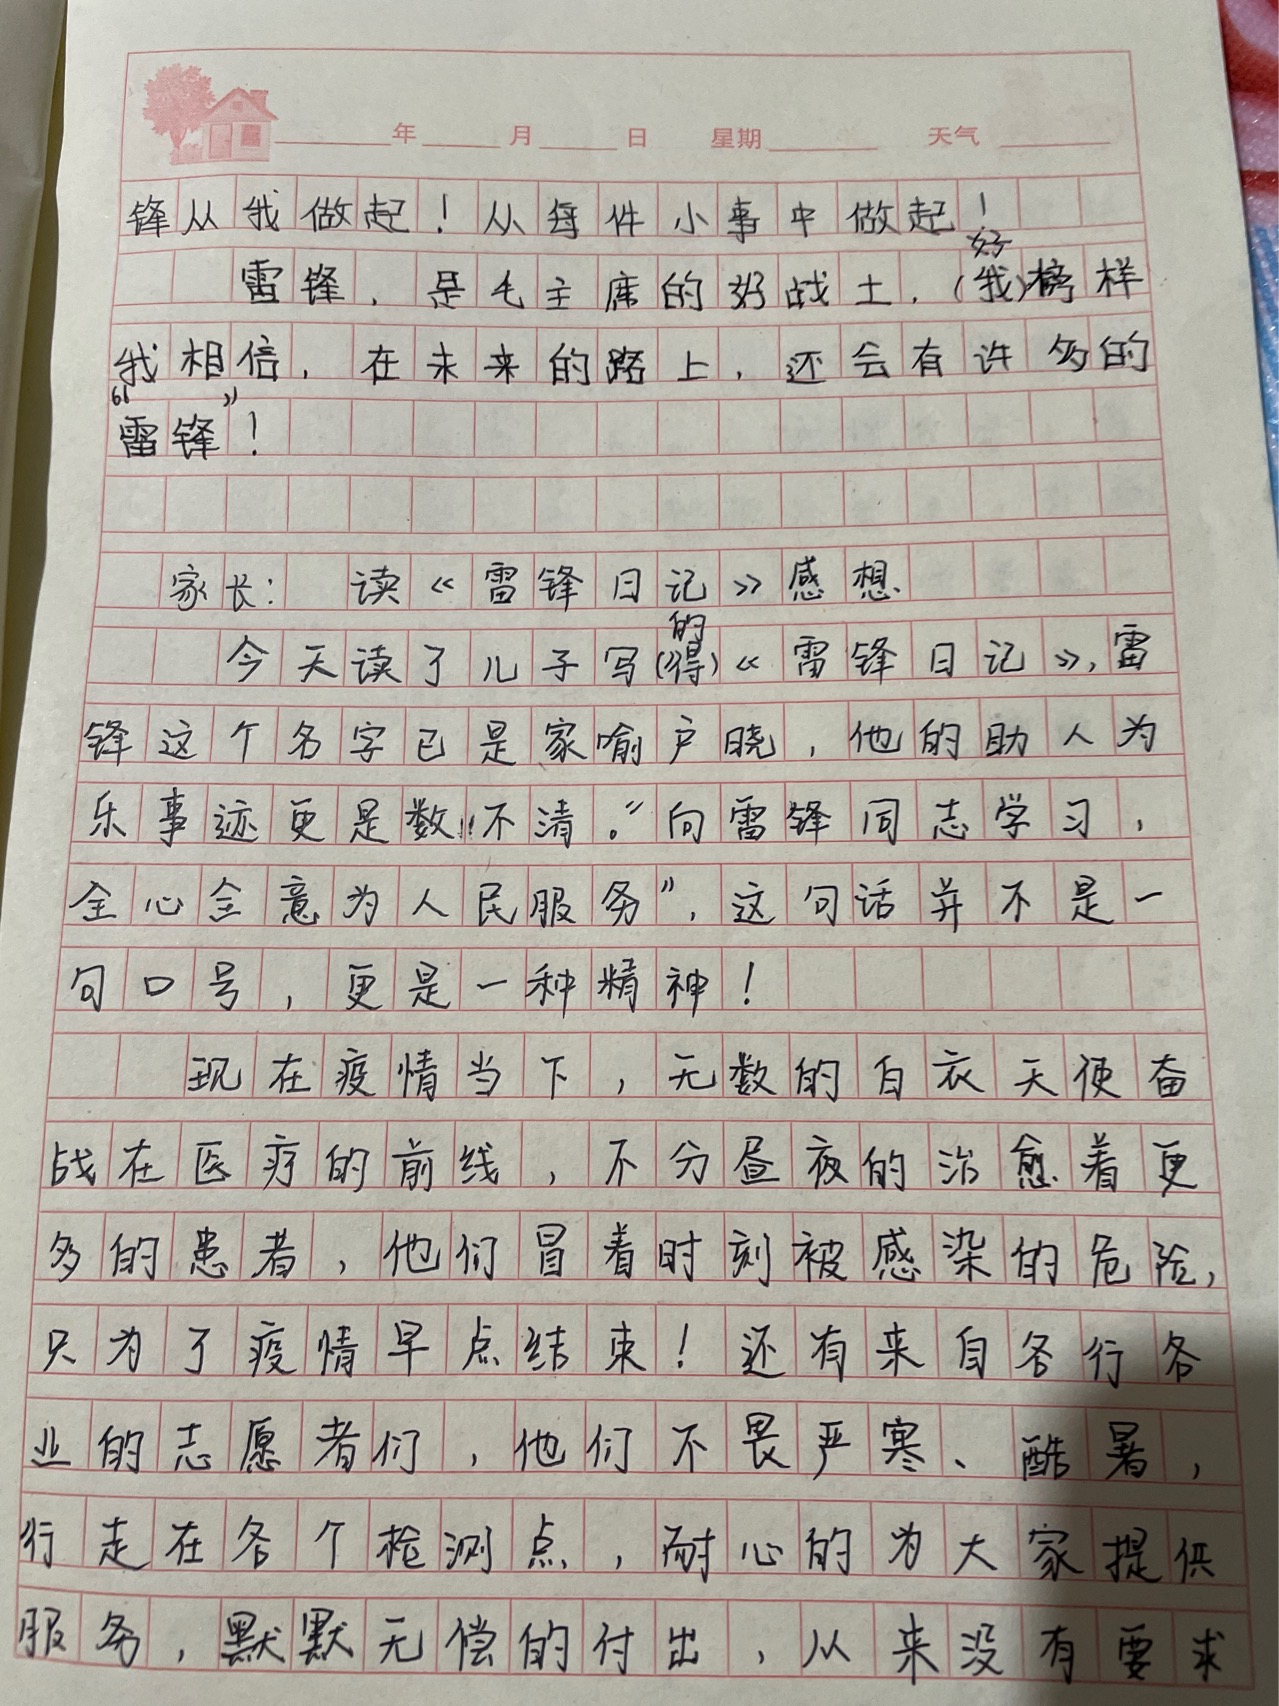 年 月 日 星期 天气
锋从我做起！从每件小事中做起！
雷锋，是毛主席的好战士，(我)好榜样
我相信，在未来的路上，还会有许多的
“雷锋”！
家长：读《雷锋日记》感想
今天读了儿子写(得)的《雷锋日记》，雷
锋这个名字已是家喻户晓，他的助人为
乐事迹更是数不清。“向雷锋同志学习，
全心全意为人民服务”，这句话并不是一
句口号，更是一种精神！
现在疫情当下，无数的白衣天使奋
战在医疗的前线，不分昼夜的治愈着更
多的患者，他们冒着时刻被感染的危险，
只为了疫情早点结束！还有来自各行各
业的志愿者们，他们不畏严寒、酷暑，
行走在各个检测点，耐心的为大家提供
服务，默默无偿的付出，从来没有要求